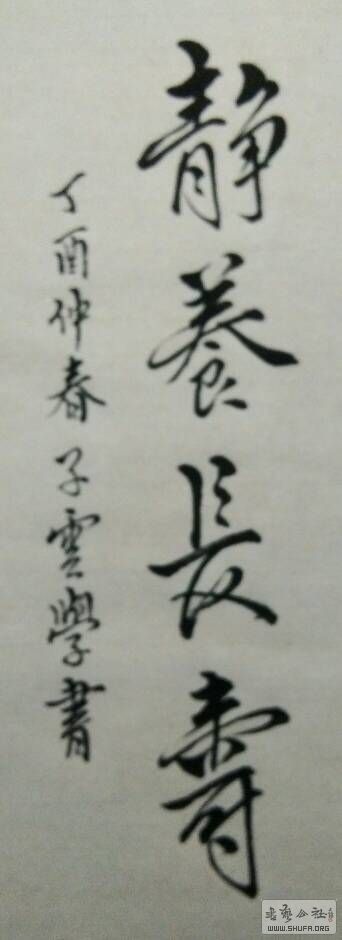 静養長壽
丁酉仲春子雲學書
书艺公社
WWW.SHUFA.ORG